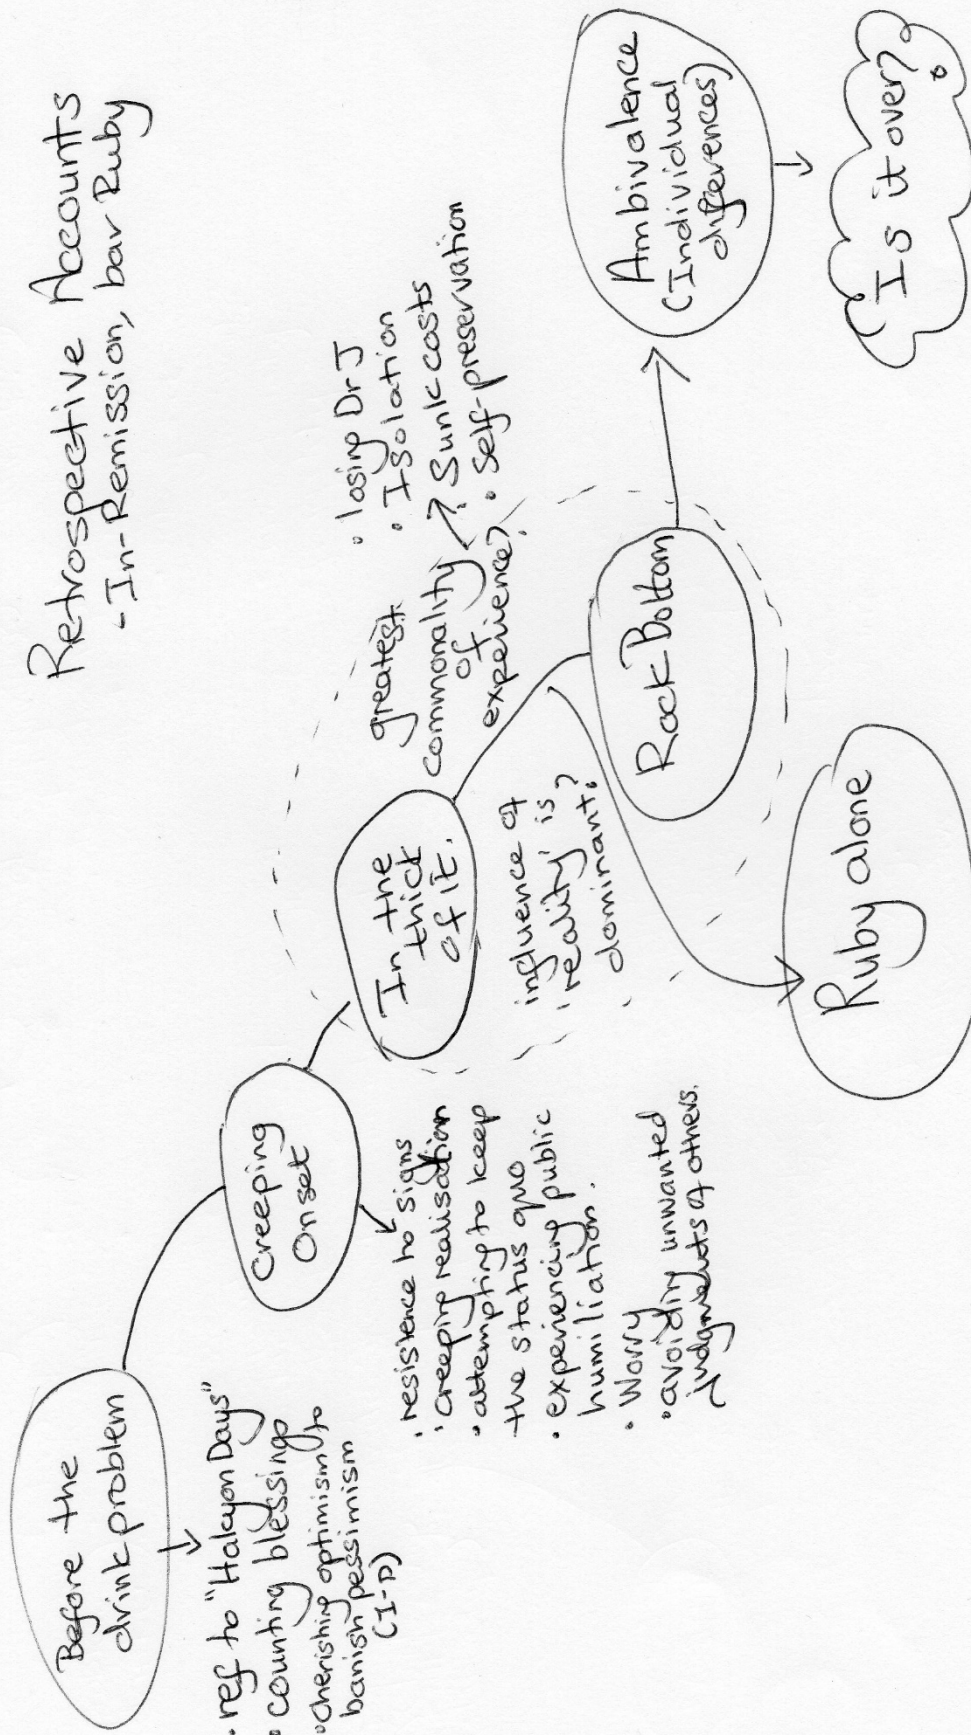 Retrospective Accounts
-In-Remission, bar Ruby
Before the
drink problem
. ref to "Halcyon Days"
. counting blessings
. cherishing optimism to
banish pessimism
(I-D)
Creeping
Onset
. resistence to signs
. creeping realisation
. attempting to keep
the status quo
. experiencing public
humiliation.
. Worry
. avoiding unwanted
judgments of others.
In the
thick
of it.
greatest
commonality
of
experience?
. losing Dr J
. Isolation
. Sunk costs
. Self-preservation
influence of
'reality' is
dominant?
Rock Bottom
Ruby alone
Ambivalence
(Individual
differences)
Is it over?